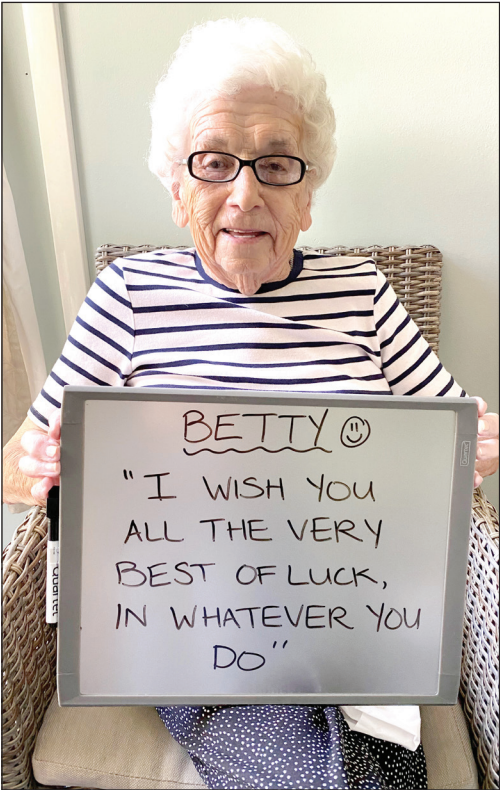 BETTY
"I WISH YOU
ALL THE VERY
BEST OF LUCK,
IN WHATEVER YOU
DO"
Quartet